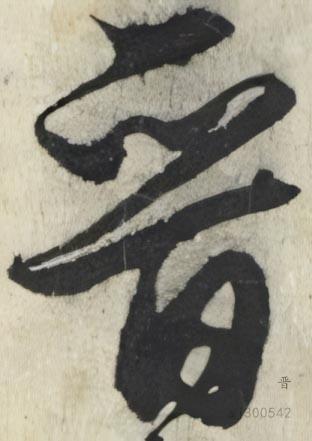 晋
晋
a1300542